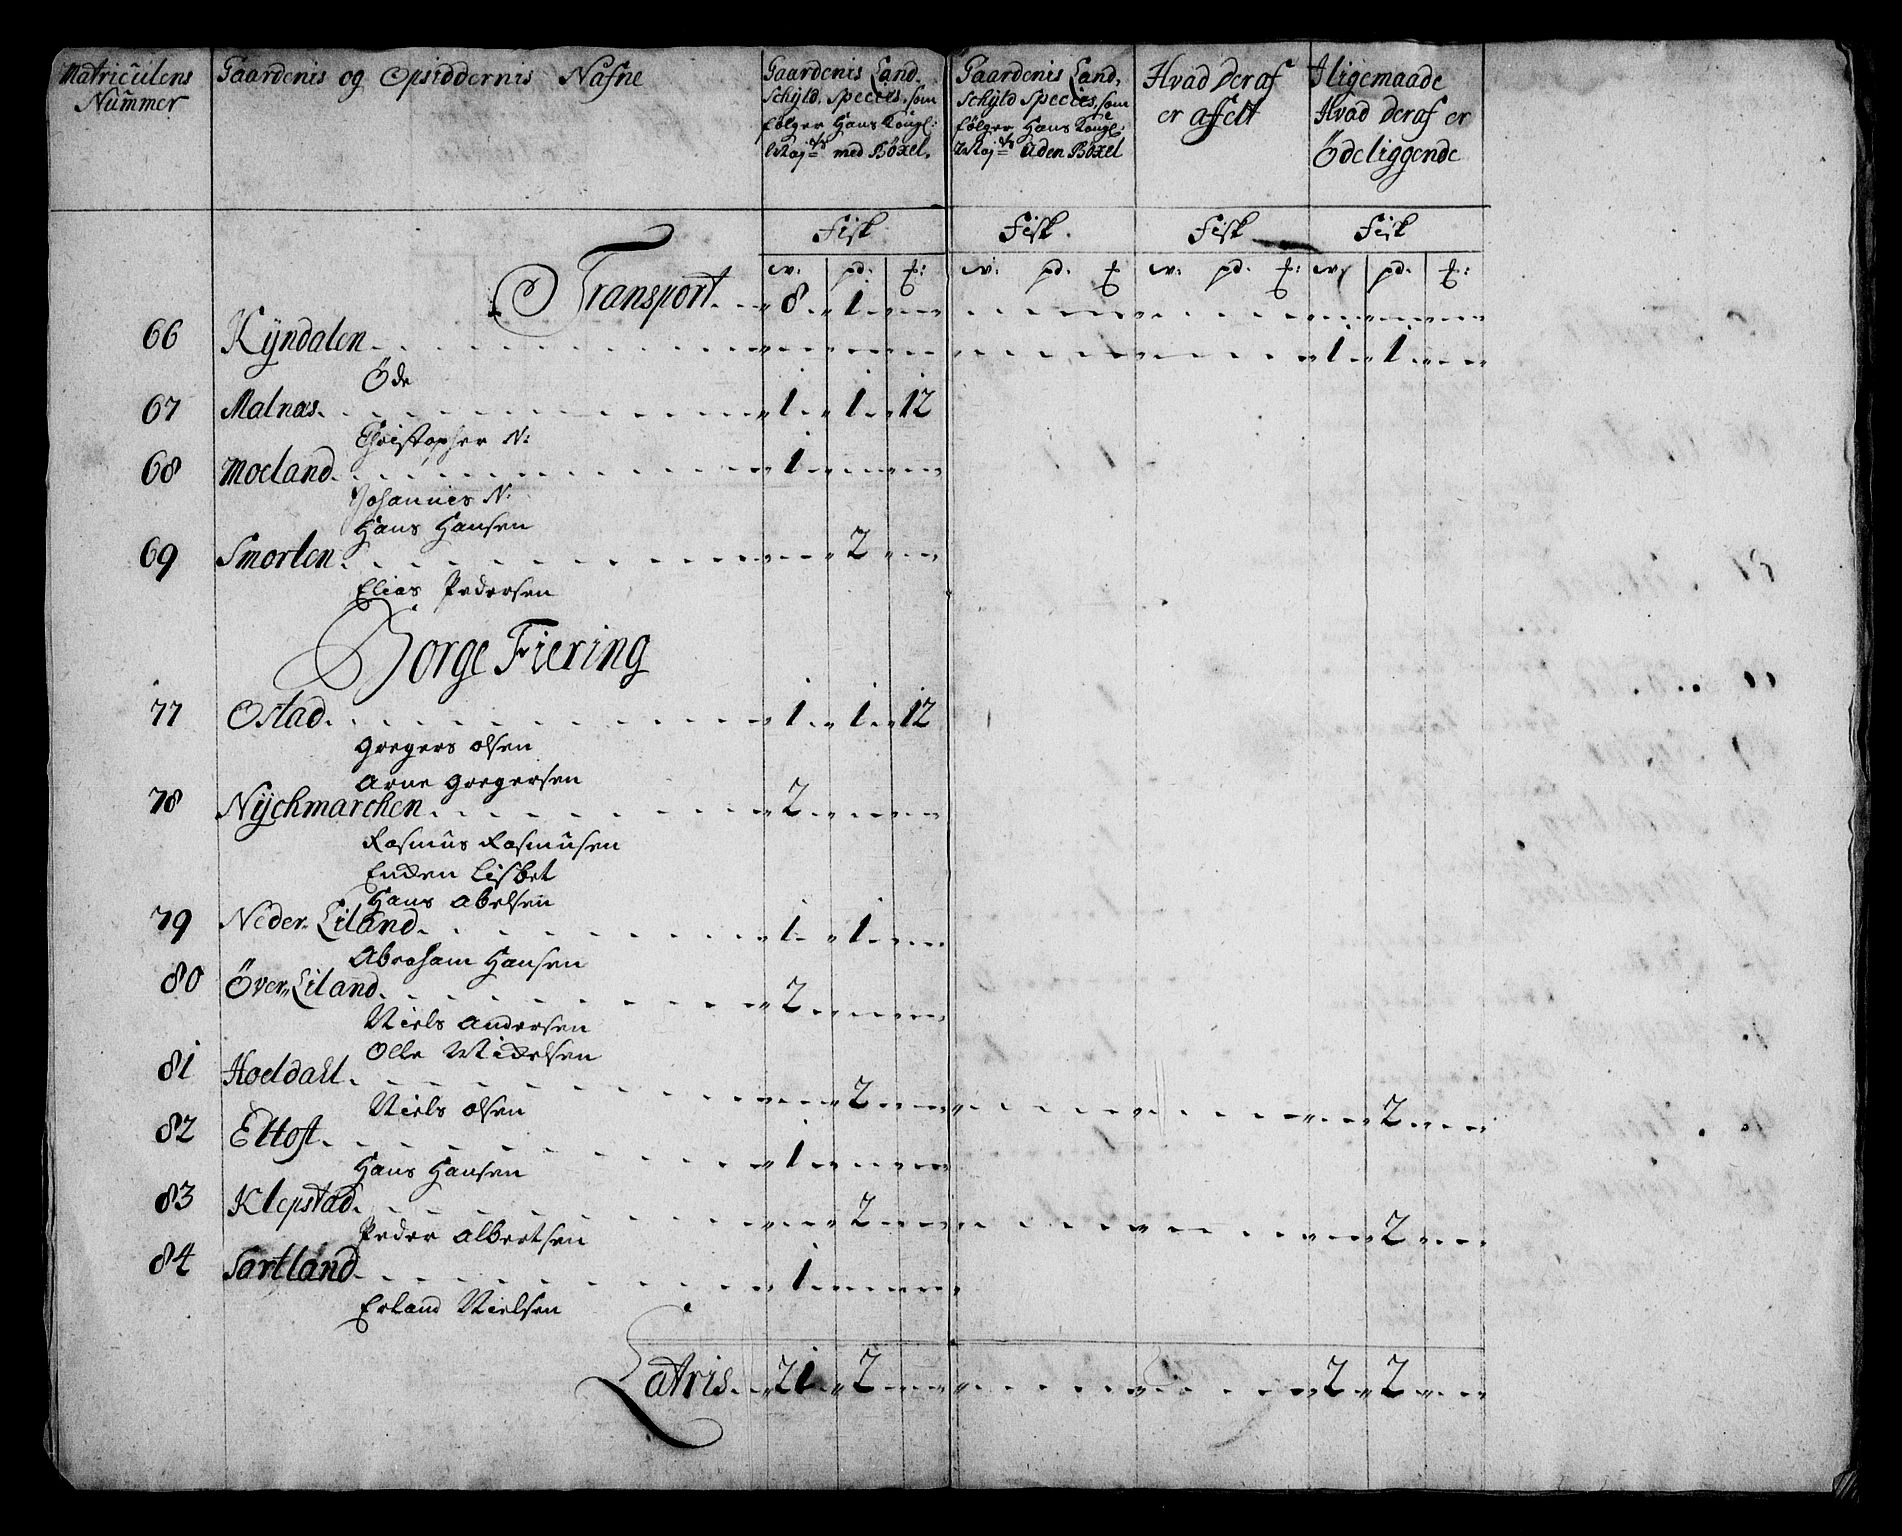 Matriculens Nummer
Gaardenis og Opsiddernis Nafne
Gaardenis Land Schÿld, Species, som følger Hans Kongl: Majts med Böxel.
Gaardenis Land Schÿld Species, som følger Hans Kongl: Majts uden Böxel
Hvad deraf er affelt
Iligemaade Hvad deraf er Ödeliggende
Fisk Fisk. Fisk Fisk
w: pd. ₶: w: pd. ₶ w: pd. ₶: w: pd. ₶:
Transport. 8 1
66 Kÿndalen 1 1
Öde
67 Malnæs. 1 1 12
Christopher N:
68 Moeland. 1
Johannes N:
Hans Hansen
69 Smorten. 2
Elias Pedersen
Borge Fiering
77 Ostad. 1 1 12
Gregers Olsen
Arne Gregersen
78 Nÿchmarchen. 2
Rasmus Rasmusen
Encken Lisbet
Hans Abelsen
79 Neder Liland. 1 1
Abraham Hansen
80 Över Liland. 2
Niels Andersen
Olle Mickelsen
81 Hoeldall. 2 2
Niels Olsen
82 Eltoft. 1
Hans Hansen
83 Klepstad. 2 2
Peder Albertsen
84 Sartland 1
Erland Nielsen
Latris. 21 2 2 2